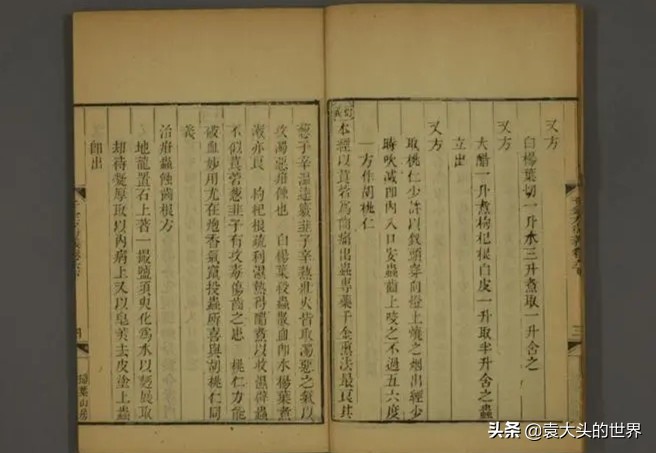 又方
白楊葉切一升水三升煮取一升含之
又方
大醋一升煮枸杞根白皮一升取半升含之蟲
立出
又方
取桃仁少許以釵頭穿向燈上燒之烟出經少
時吹滅即內入口安蟲齒上咬之不過五六度
一方作胡桃仁
本經以莨菪為齒痛出蟲專藥千金熏法最良其
葱子辛溫韭子辛熱
攻濁惡疳蝕也 白楊葉殺蟲散血即水楊葉煮
漱亦良 枸杞根疏利虛熱得醋煮以收濕辟蟲
不似莨菪葱韭子有攻毒傷齒之患 桃仁方能
破血妙用尤在炮香氣竄投蟲所喜與胡桃仁同
義
治疳蟲蝕齒根方
地龍置石上著一撮鹽須臾化為水以麵展取
却待凝厚取以內病上又以皂莢去皮塗上蟲
即出
三
掃葉山房
头条 @袁大头的世界